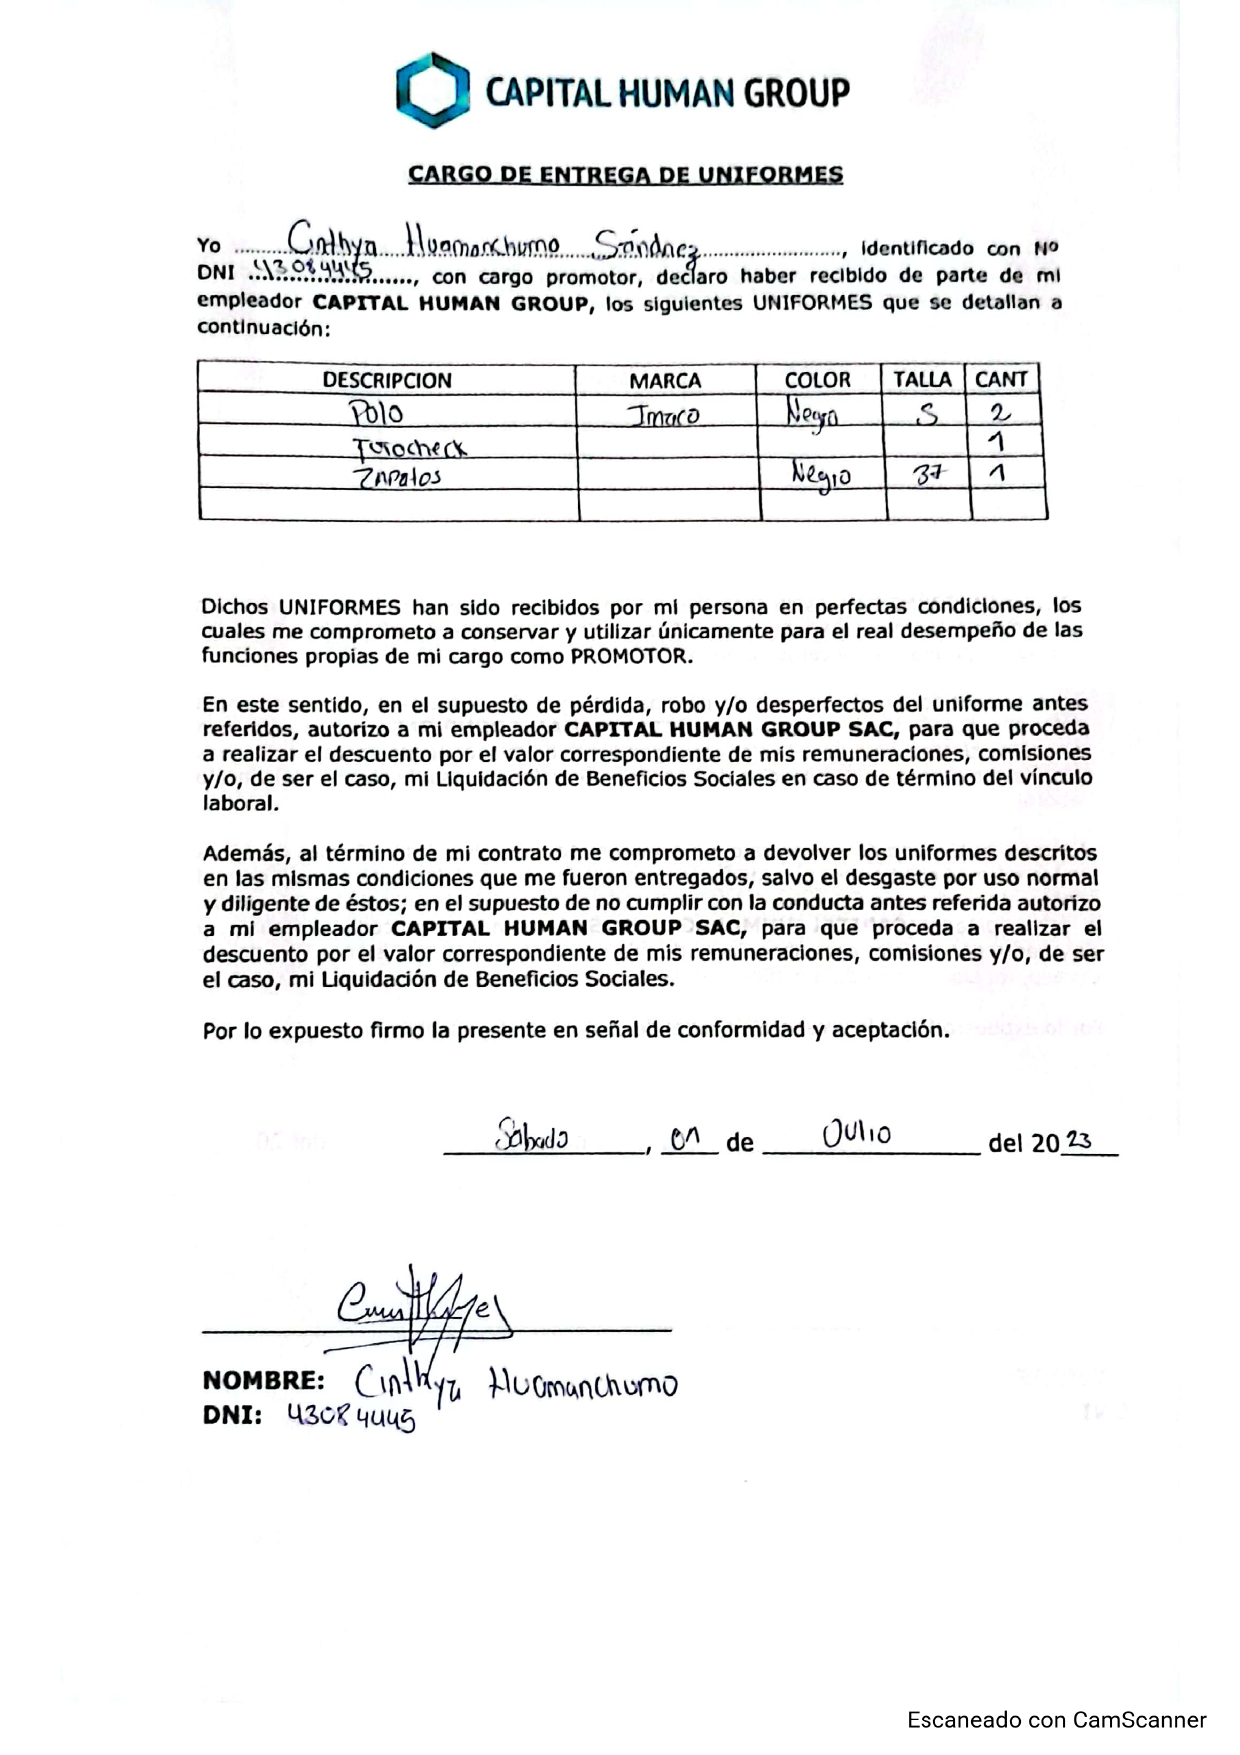 CAPITAL HUMAN GROUP
CARGO DE ENTREGA DE UNIFORMES
Yo ......Cinthya Huamanchumo Sánchez......, identificado con Nº
DNI ...43084445......, con cargo promotor, declaro haber recibido de parte de mi
empleador CAPITAL HUMAN GROUP, los siguientes UNIFORMES que se detallan a
continuación:
DESCRIPCION MARCA COLOR TALLA CANT
Polo Imaco Negro S 2
Fotocheck 1
Zapatos Negro 37 1
Dichos UNIFORMES han sido recibidos por mi persona en perfectas condiciones, los
cuales me comprometo a conservar y utilizar únicamente para el real desempeño de las
funciones propias de mi cargo como PROMOTOR.
En este sentido, en el supuesto de pérdida, robo y/o desperfectos del uniforme antes
referidos, autorizo a mi empleador CAPITAL HUMAN GROUP SAC, para que proceda
a realizar el descuento por el valor correspondiente de mis remuneraciones, comisiones
y/o, de ser el caso, mi Liquidación de Beneficios Sociales en caso de término del vínculo
laboral.
Además, al término de mi contrato me comprometo a devolver los uniformes descritos
en las mismas condiciones que me fueron entregados, salvo el desgaste por uso normal
y diligente de éstos; en el supuesto de no cumplir con la conducta antes referida autorizo
a mi empleador CAPITAL HUMAN GROUP SAC, para que proceda a realizar el
descuento por el valor correspondiente de mis remuneraciones, comisiones y/o, de ser
el caso, mi Liquidación de Beneficios Sociales.
Por lo expuesto firmo la presente en señal de conformidad y aceptación.
Sábado, 01 de Julio del 2023
NOMBRE: Cinthya Huamanchumo
DNI: 43084445
Escaneado con CamScanner